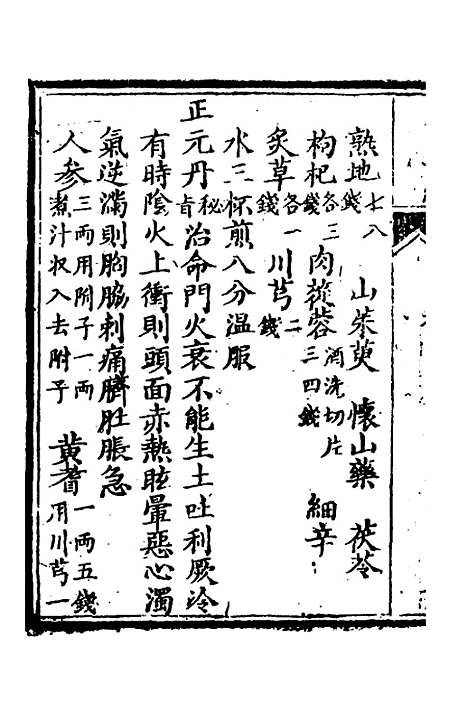 熟地七八錢　山茱萸　懷山藥　茯苓
枸杞各三錢　肉蓯蓉酒洗切片三四錢　細辛
炙草各一錢　川芎二錢
水三杯煎八分溫服
正元丹秘旨治命門火衰不能生土吐利厥冷
有時陰火上衝則頭面赤熱眩暈惡心濁
氣逆滿則胸脇刺痛臍肚脹急
人參三兩用附子一兩煮汁收入去附子　黃耆一兩五錢用川芎一